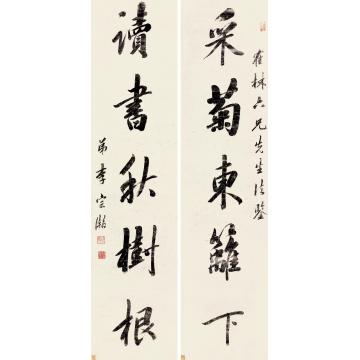 霍林六兄先生法鉴
采菊東籬下
讀書秋樹根
弟李宗瀚